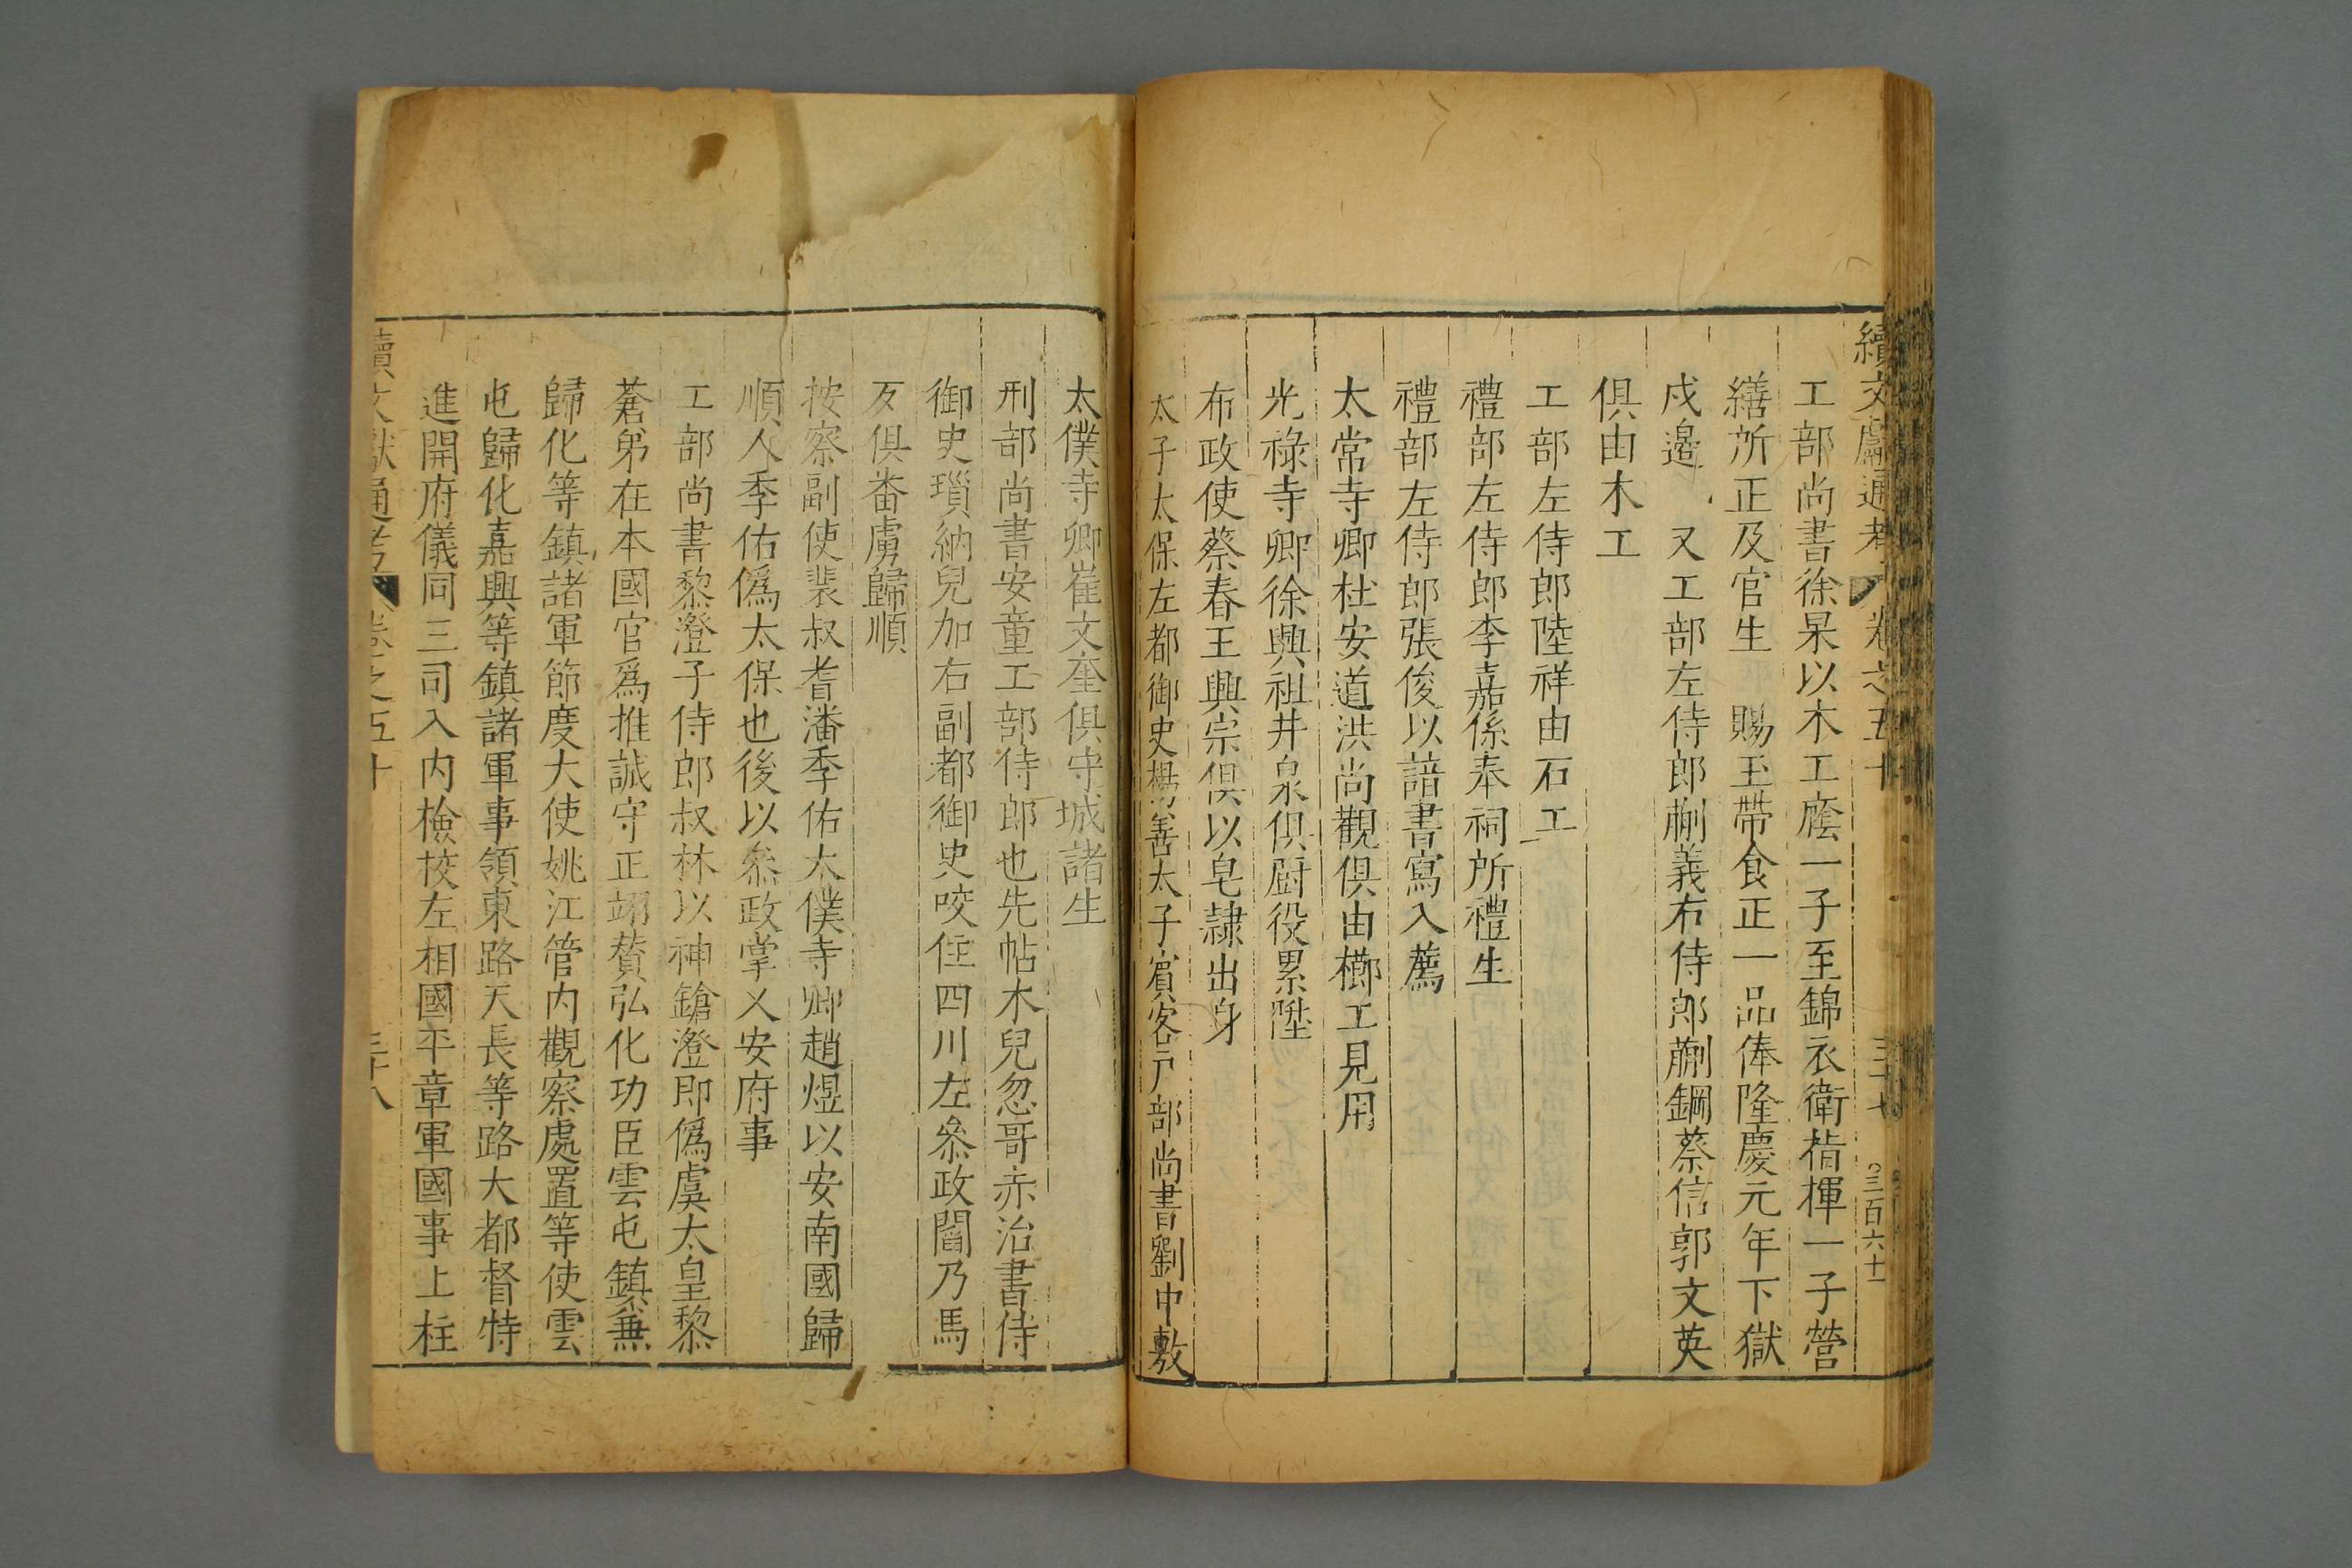 續文獻通考 卷之五十 三十七 三百六十一
工部尚書徐杲以木工廕一子至錦衣衛指揮一子營
繕所正及官生 賜玉帶食正一品俸隆慶元年下獄
戍邊 又工部左侍郎蒯義右侍郎蒯鋼蔡信郭文英
俱由木工
工部左侍郎陸祥由石工
禮部左侍郎李嘉係奉祠所禮生
禮部左侍郎張俊以諳書寫入薦
太常寺卿杜安道洪尚觀俱由櫛工見用
光祿寺卿徐興祖井泉俱厨役累陞
布政使蔡春王興宗俱以皂隸出身
太子太保左都御史楊善太子賓客戸部尚書劉中敷
太僕寺卿崔文奎俱守城諸生
刑部尚書安童工部侍郎也先帖木兒忽哥赤治書侍
御史瑣納兒加右副都御史咬住四川左叅政閻乃馬
歹俱番虜歸順
按察副使裴叔耆潘季佑太僕寺卿趙煜以安南國歸
順人季佑僞太保也後以叅政掌乂安府事
工部尚書黎澄子侍郎叔林以神鎗澄即僞虞太皇黎
蒼弟在本國官爲推誠守正翊賛弘化功臣雲屯鎮兼
歸化等鎮諸軍節度大使姚江管内觀察處置等使雲
屯歸化嘉興等鎮諸軍事領東路天長等路大都督特
進開府儀同三司入内檢校左相國平章軍國事上柱
續文獻通考 卷之五十 三十八